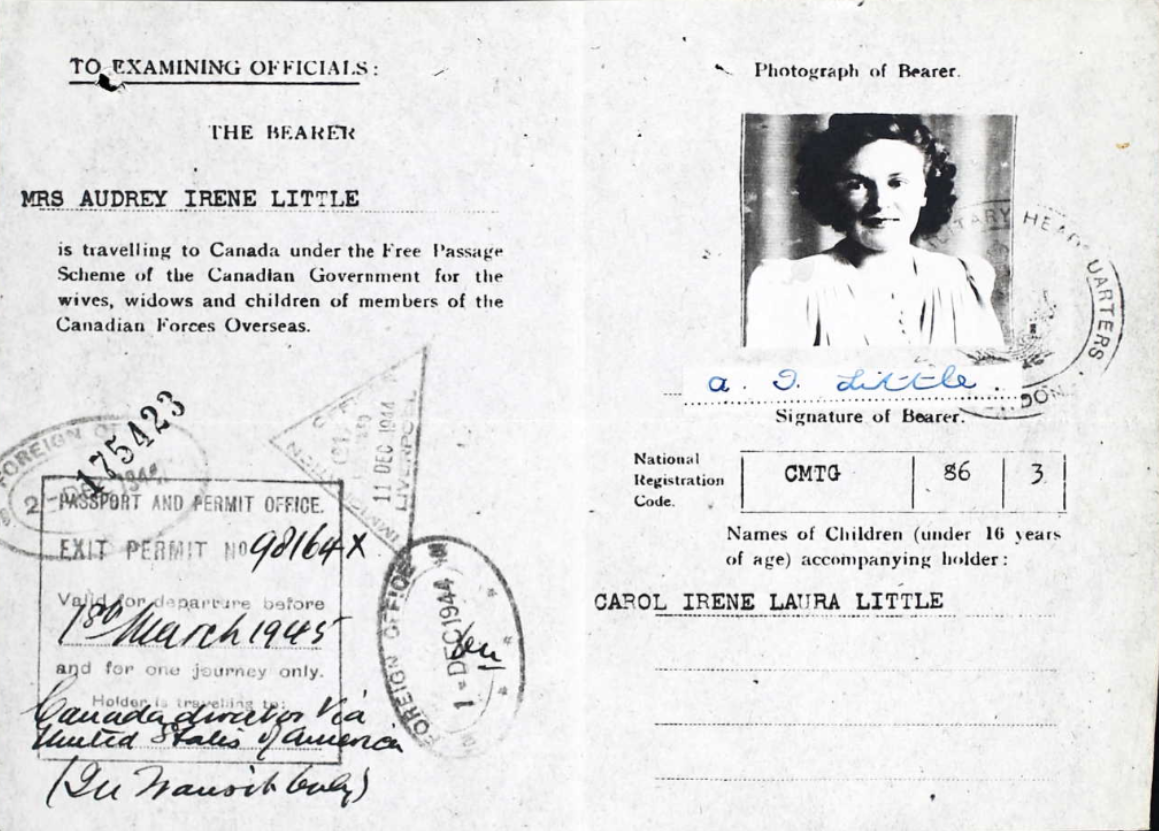 TO EXAMINING OFFICIALS:
THE BEARER
MRS AUDREY IRENE LITTLE
is travelling to Canada under the Free Passage
Scheme of the Canadian Government for the
wives, widows and children of members of the
Canadian Forces Overseas.
175423
FOREIGN
PASSPORT AND PERMIT OFFICE.
EXIT PERMIT No 98164X
Valid for departure before
1st March 1945
and for one journey only.
Holder is travelling to:
Canada direct or Via
United States of America
(In Transit Only)
11 DEC 1944
LIVERPOOL
FOREIGN OFFICE
1 - DEC 1944
Photograph of Bearer.
MILITARY HEADQUARTERS
A. I. Little.
Signature of Bearer.
National
Registration
Code.
CMTG 86 3
Names of Children (under 16 years
of age) accompanying holder:
CAROL IRENE LAURA LITTLE